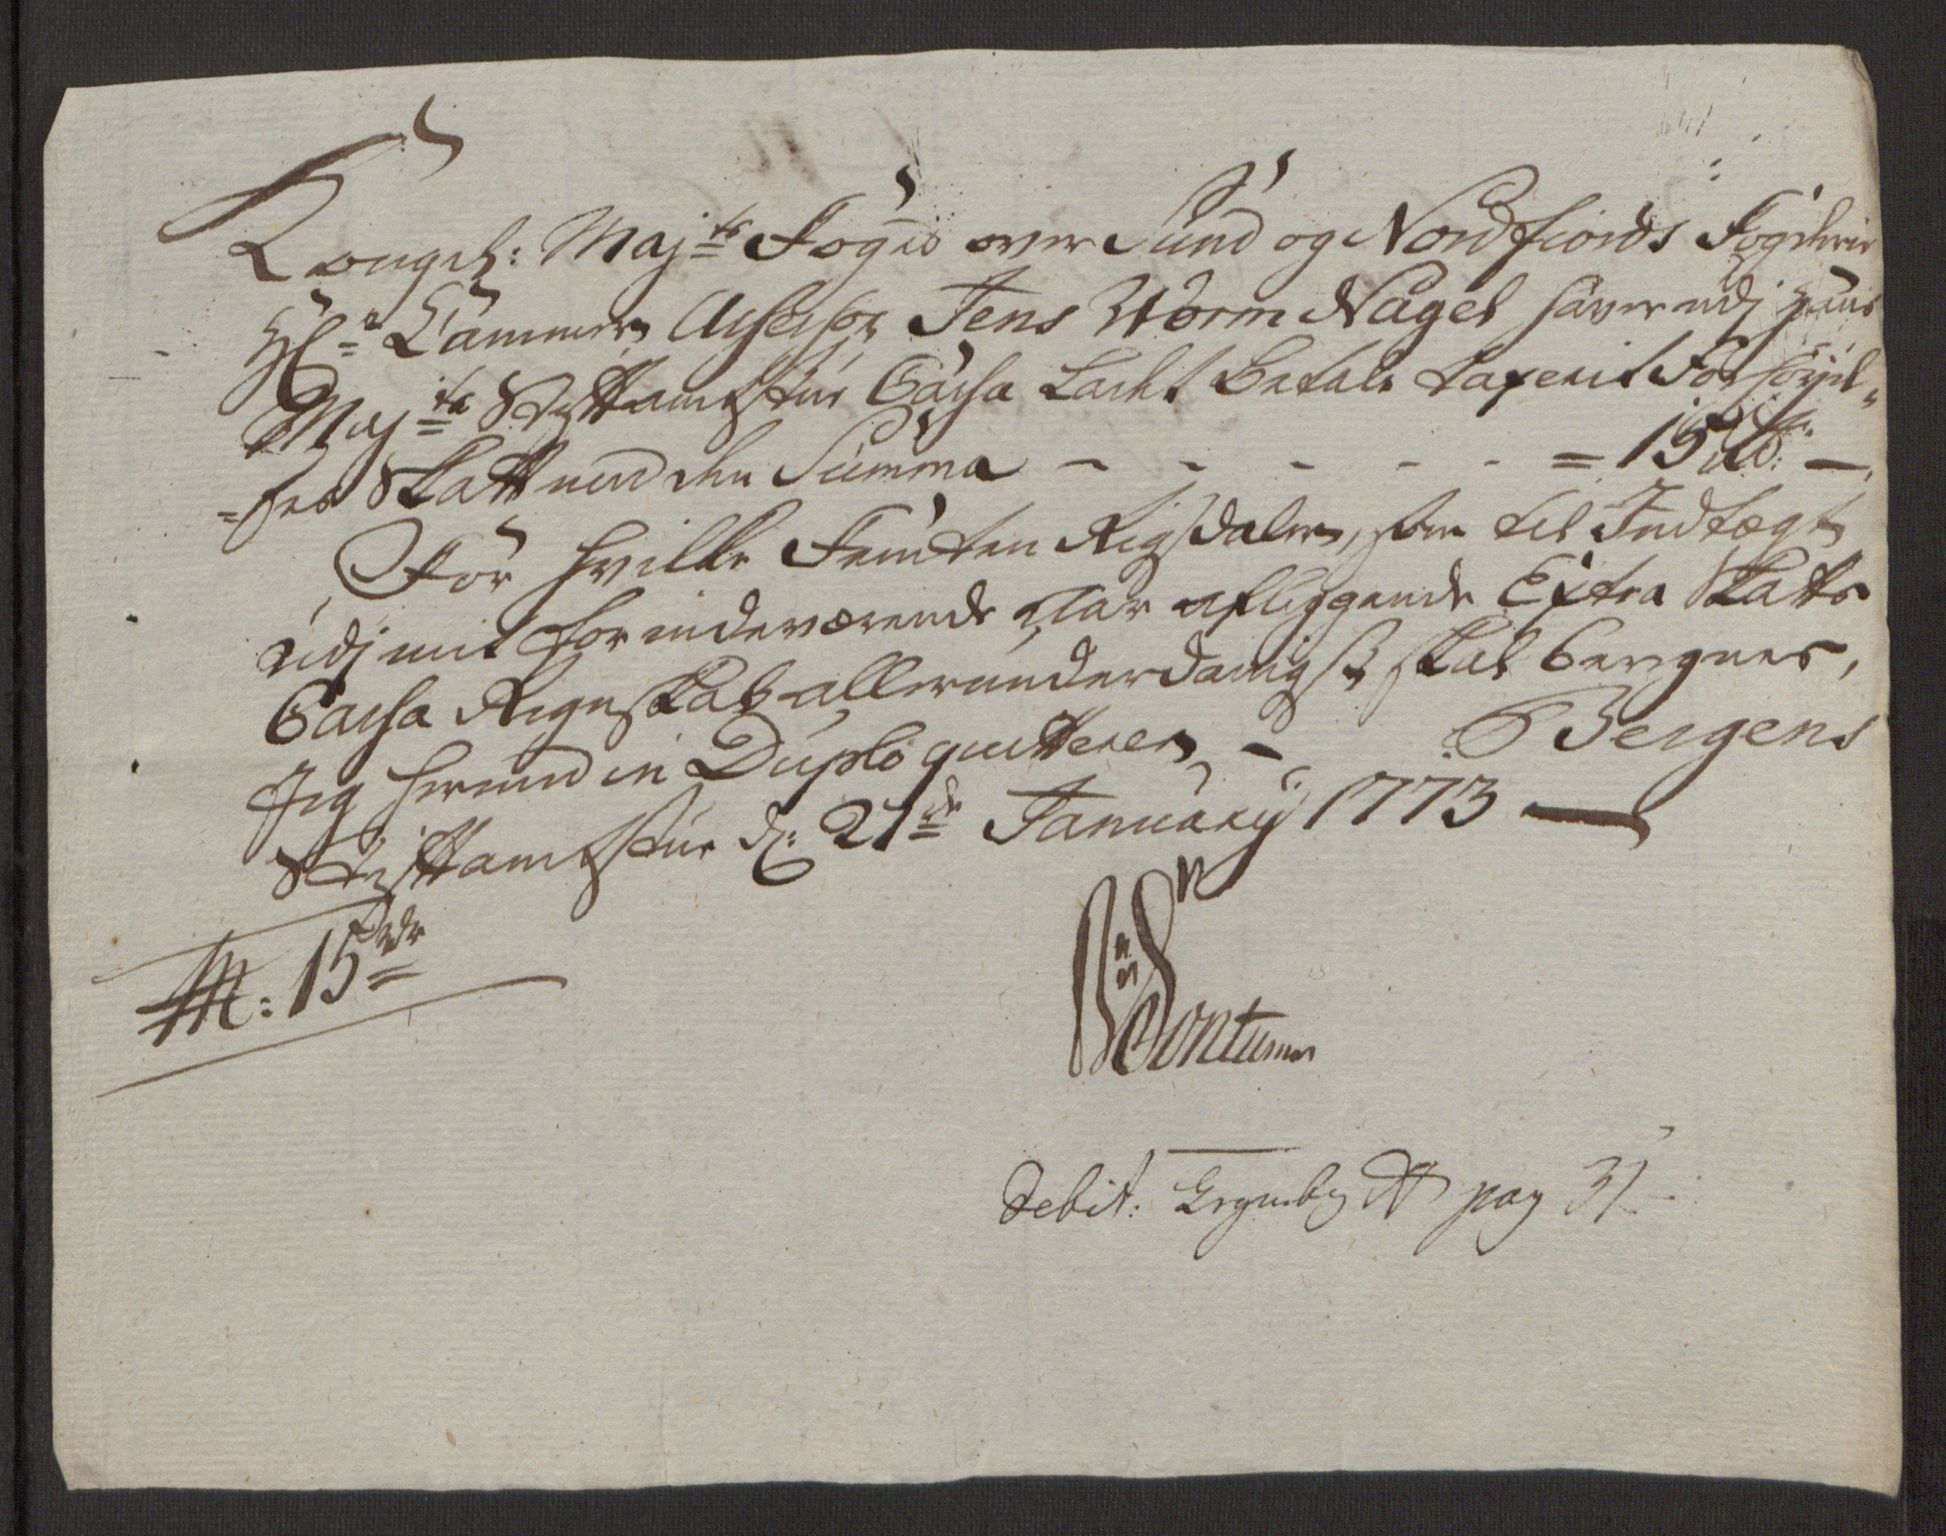 Kongel: Maj:ts Foged over Sund og Nordfiords Fogderie
Hr: Cammer Assessor Jens Worm Nagel haver udj Hans
Maj:ts Stiftamtstue Cassa Ladet Betale taxerit Forhøyel=
=ses Skatt med den Summa - - - - - = 15 Rd: -
For hvilke Femten Rigsdaler, som til Indtægt
udj mit for indeværende Aar aflæggende Extra Skatte
Cassa Regnskab allerunderdanigst skal beregnes,
Jeg hermed in Duplo quitterer, - Bergens
Stiftamtstue d: 21de January 1773 -
15 rdr
Sontum
Debit: pag 31